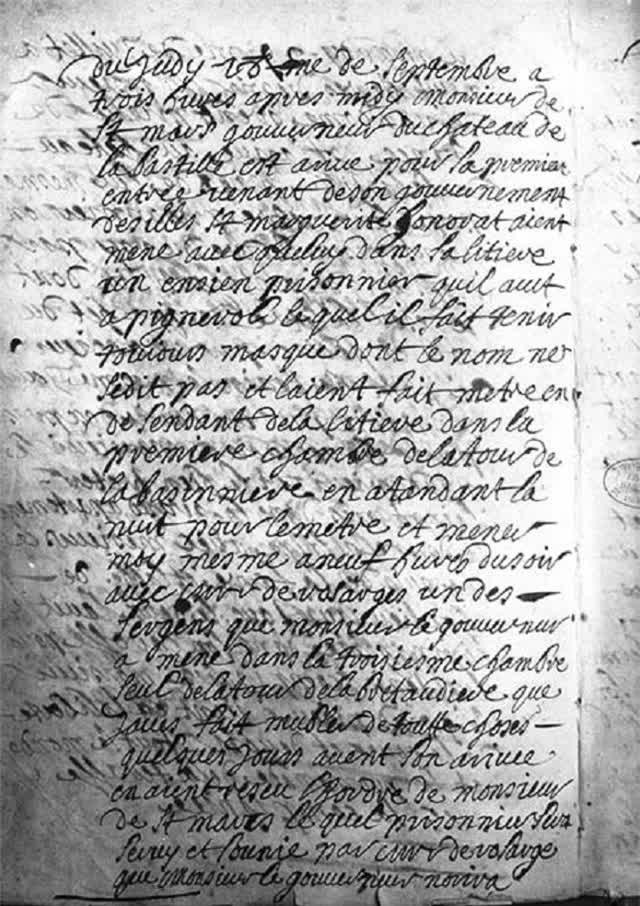 du judy 18me de Septembre a
trois hures apres midy monsieur de
St mars gouverneur du chateau de
la bastille est arive pour sa premier
entrée venant de son gouvernement
des illes St marguerite honorat aient
mene avec queluy dans sa litiere
un ensien prisonnier quil avet
a pignerol le quel il fait tenir
touiours masque dont le nom ne
sedit pas et laient fait metre en
de sendant dela litiere dans la
premiere chambre delatour de
la basinniere en atandant la
nuit pour lemetre et mener
moy mesme aneuf hures du soir
avec mr de rosarges un des
sergens que monsieur le gouverneur
a mene dans la troisiesme chambre
seul delatour delabretaudiere que
javes fait mubler de toutte choses
quelques jours avent son arivee
en aient reseu lhordre de monsieur
de St mars le quel prisonnier sera
servy et sounie par mr de rosarge
que monsieur le gouverneur norira